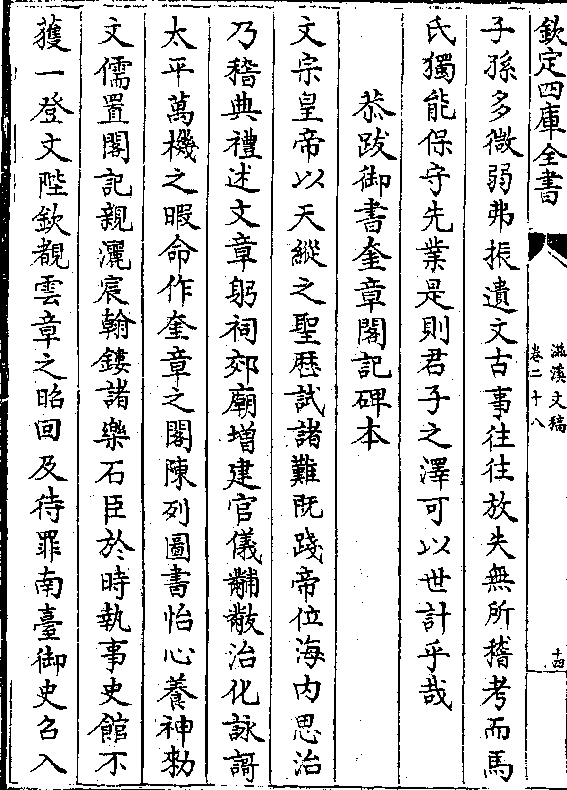 欽定四庫全書
滋溪文稿
卷二十八
十四
子孫多微弱弗振遺文古事往往放失無所稽考而馬
氏獨能保守先業是則君子之澤可以世計乎哉
恭跋御書奎章閣記碑本
文宗皇帝以天縱之聖歴試諸難既踐帝位海内思治
乃稽典禮述文章躬祠郊廟增建官儀黼黻治化詠謌
太平萬機之暇命作奎章之閣陳列圖書怡心養神勑
文儒置閣記親灑宸翰鏤諸樂石臣於時執事史館不
獲一登文陛欽覩雲章之昭回及待罪南臺御史召入